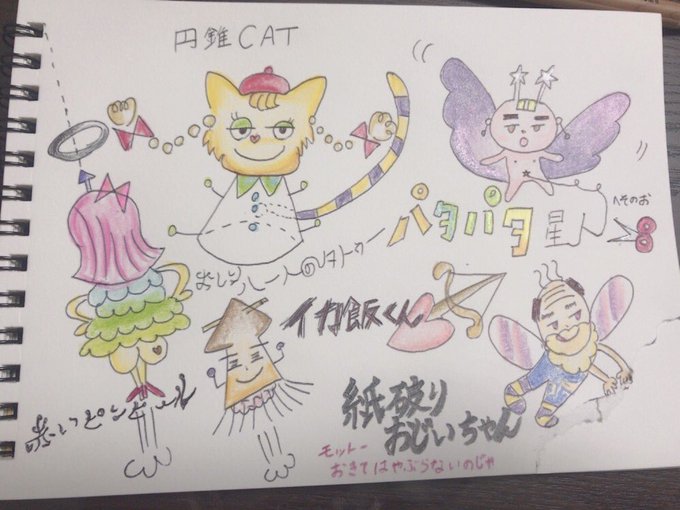 円錐CAT
パタパタ星人
へそのお
イカ飯くん
赤いピンヒール
紙破り
おじいちゃん
モットー
おきてはやぶらないのじゃ